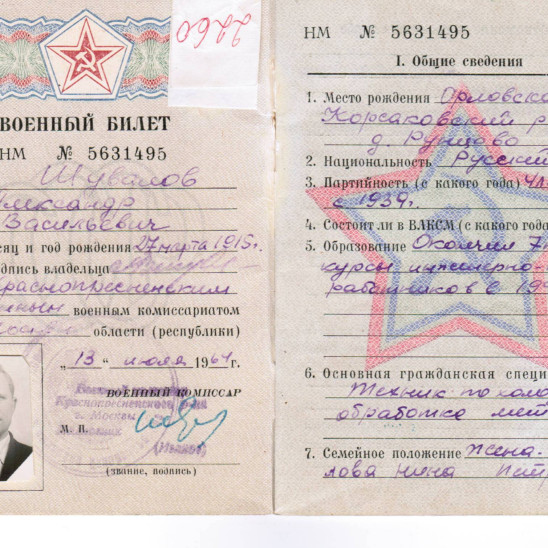 2260
ВОЕННЫЙ БИЛЕТ
НМ № 5631495
Шувалов
лександр
Васильевич
сяц и год рождения 27 марта 1915г.
дпись владельца
раснопресненским
военным комиссариатом
области (республики)
„13" июля 1964г.
ВОЕННЫЙ КОМИССАР
Краснопресненского
г. Москвы
М. П.
(звание, подпись)
НМ № 5631495
I. Общие сведения
1. Место рождения Орловска
Корсаковский р
д. Рунцово
2. Национальность Русский
3. Партийность (с какого года) чл
с 1939г.
4. Состоит ли в ВЛКСМ (с какого года
5. Образование Окончил 7
курсы инженерно-
работников в 19
6. Основная гражданская специ
Техник по холо
обработке мет
7. Семейное положение Жена-
лова Нина Пет